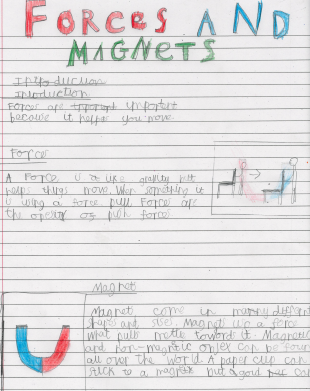 FORCES AND
MAGNETS
Introduction
Introduction
Forces are important
because it helps you move
Force
A Force is like gravity it
helps things move. When something is
is using a force. pull Force are
the opersit of push force
Magnet
Magnet come in many different
shape and size. Magnet is a force
what pulls metle toward it. Magnetic
and non-magnetic can be found
all over the world. A paper clip can
stick to a magnet but a gord can